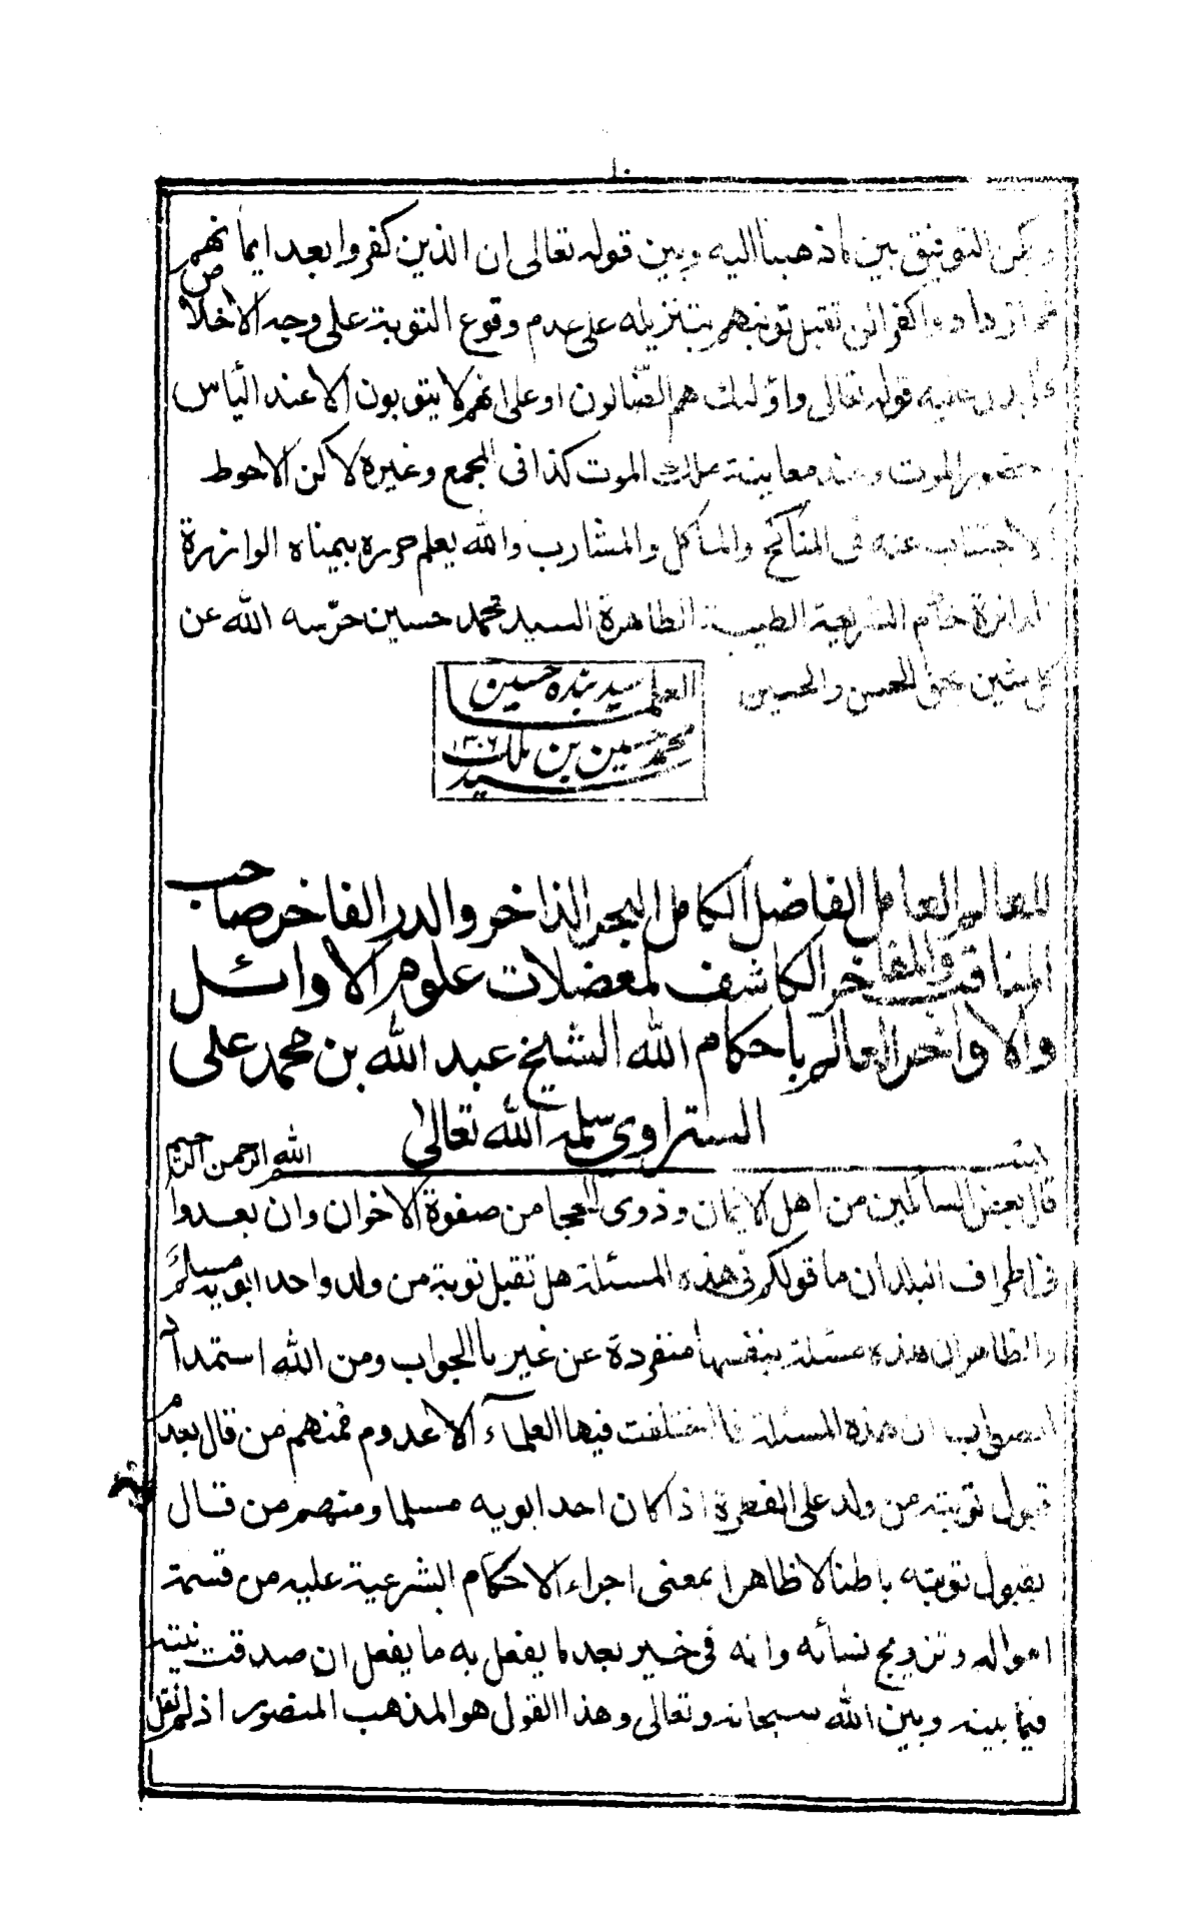 ويمكن التوفيق بين ما ذهبنا اليه وبين قوله تعالى ان الذين كفروا بعد ايمانهم
ثم ازدادوا كفرا لن تقبل توبتهم بتنزيله على عدم وقوع التوبة على وجه الاخلاص
كما يدل عليه قوله تعالى واولئك هم الضّالون او على انهم لا يتوبون الا عند اليأس
حضور الموت وعند معاينة ملك الموت كذا فى المجمع وغيره لاكن الاحوط
الاجتناب عنه فى المناكح والمآكل والمشارب والله يعلم حرره بيمناه الوازرة
الداثرة خادم الشريعة الطيبة الطاهرة السيد محمد حسين حرّسه الله عن
كل شين بحق الحسن والحسين
العلما سيد بنده حسين
محمد حسين بن ملك ١٣٠٧
سيد
للعالم العامل الفاضل الكامل البحر الذاخر والدر الفاخر صاحب
المناقب والمفاخر الكاشف لمعضلات علوم الاوائل
والاواخر العالم بأحكام الله الشيخ عبد الله بن محمد على
الستراوى سلمه الله تعالى
بسم الله الرحمن الرحيم
قال بعض السائلين من اهل الايمان وذوى الحجا من صفوة الاخوان وان بعدوا
فى اطراف البلدان ما قولكم فى هذه المسئلة هل تقبل توبة من ولد واحد ابويه مسلم
والظاهر ان هذه مسئلة بنفسها منفردة عن غيرها الجواب ومن الله استمداد
الصواب ان هذه المسئلة مما اختلفت فيها العلمآء الاعدوم فمنهم من قال بعدم
قبول توبته من ولد على الفطرة اذا كان احد ابويه مسلما ومنهم من قال
بقبول توبته باطنا لا ظاهرا بمعنى اجراء الاحكام الشرعية عليه من قسمة
امواله وتزويج نسائه وانه فى خير بعد ما يفعل به ما يفعل ان صدقت نيته
فيما بينه وبين الله سبحانه وتعالى وهذا القول هو المذهب المنصور اذ لم نقل